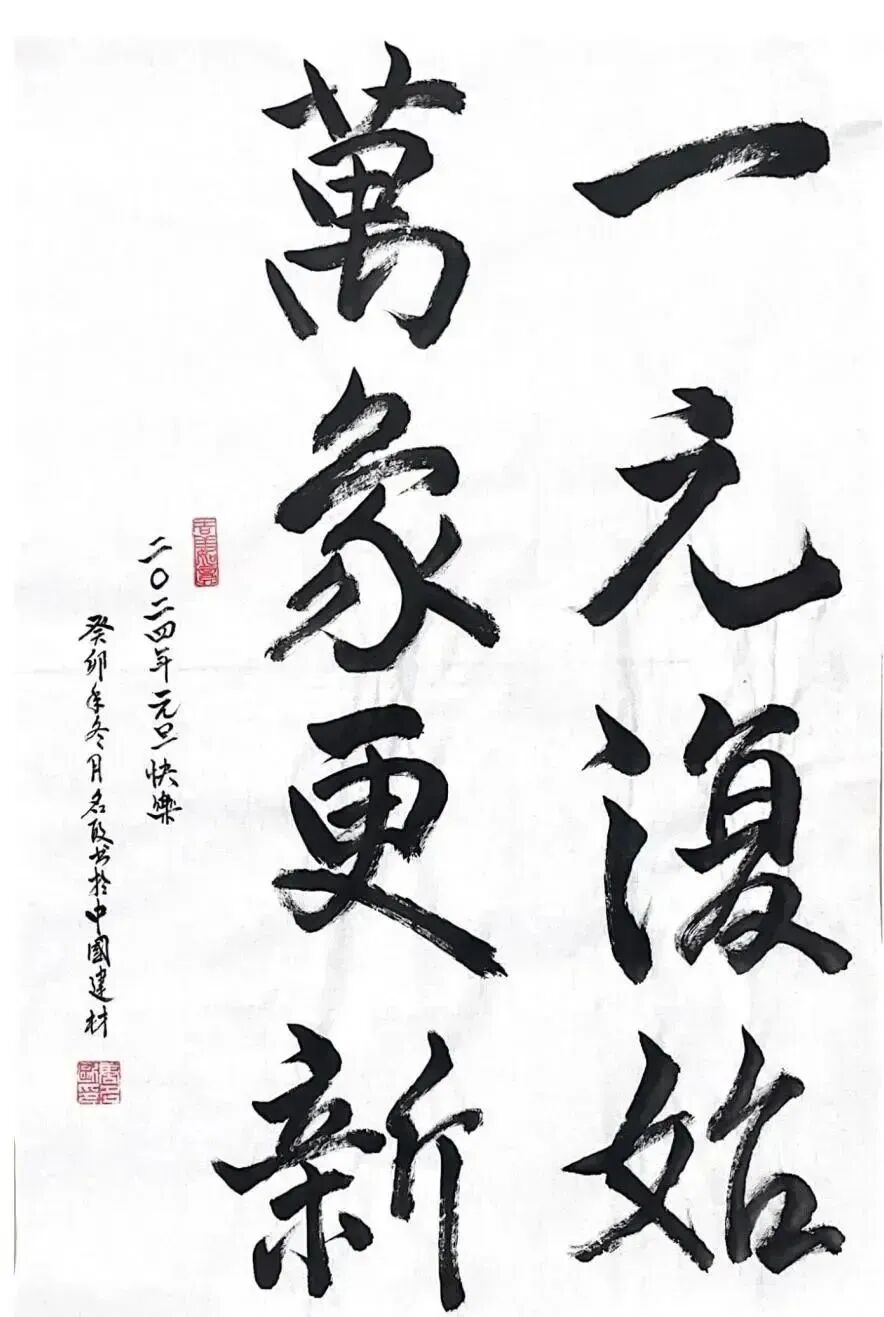 一元復始
萬象更新
二〇二四年元旦快樂
癸卯年冬月名政书於中國建材